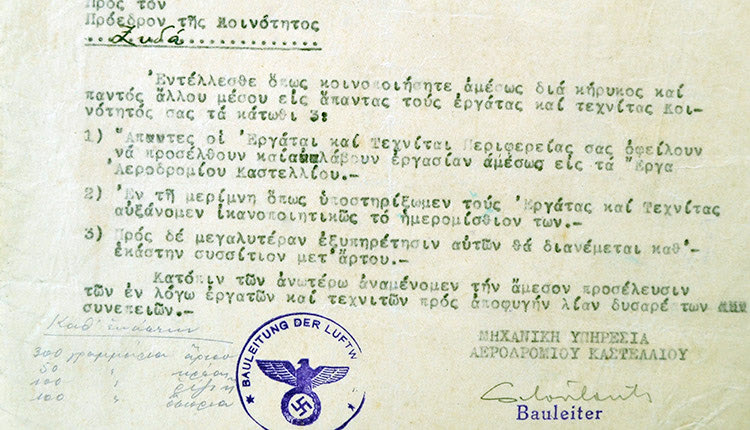 Πρός τόν
Πρόεδρον τῆς Κοινότητος
Ζυδά
Ἐντέλλεσθε ὅπως κοινοποιήσητε ἀμέσως διά κήρυκος καί
παντός ἄλλου μέσου είς ἅπαντας τούς ἐργάτας καί τεχνίτας Κοι-
νότητός σας τά κάτωθι 3:
1) Ἅπαντες οἱ Ἐργάται καί Τεχνῖται Περιφερείας σας ὀφείλουν
νά προσέλθουν καί ἀναλάβουν ἐργασίαν ἀμέσως είς τά Ἔργα
Ἀεροδρομίου Καστελλίου.-
2) Ἐν τῇ μερίμνῃ ὅπως ὑποστηρίξωμεν τούς Ἐργάτας καί Τεχνίτας
αὐξάνομεν ἱκανοποιητικῶς τό ἡμερομίσθιον των.-
3) Πρός δέ μεγαλυτέραν ἐξυπηρέτησιν αὐτῶν θά διανέμεται καθ'-
ἑκάστην συσσίτιον μετ'ἄρτου.-
Κατόπιν τῶν ἀνωτέρω ἀναμένομεν τήν ἄμεσον προσέλευσιν
τῶν ἐν λόγω ἐργατῶν καί τεχνιτῶν πρός ἀποφυγήν λίαν δυσαρέστων
συνεπειῶν.-
Καθ' ἑκάστην
300 γραμμάρια ἄρτου
50 " κρέας
100 "
100 "
BAULEITUNG DER LUFTW.
ΜΗΧΑΝΙΚΗ ΥΠΗΡΕΣΙΑ
ΑΕΡΟΔΡΟΜΙΟΥ ΚΑΣΤΕΛΛΙΟΥ
Bauleiter